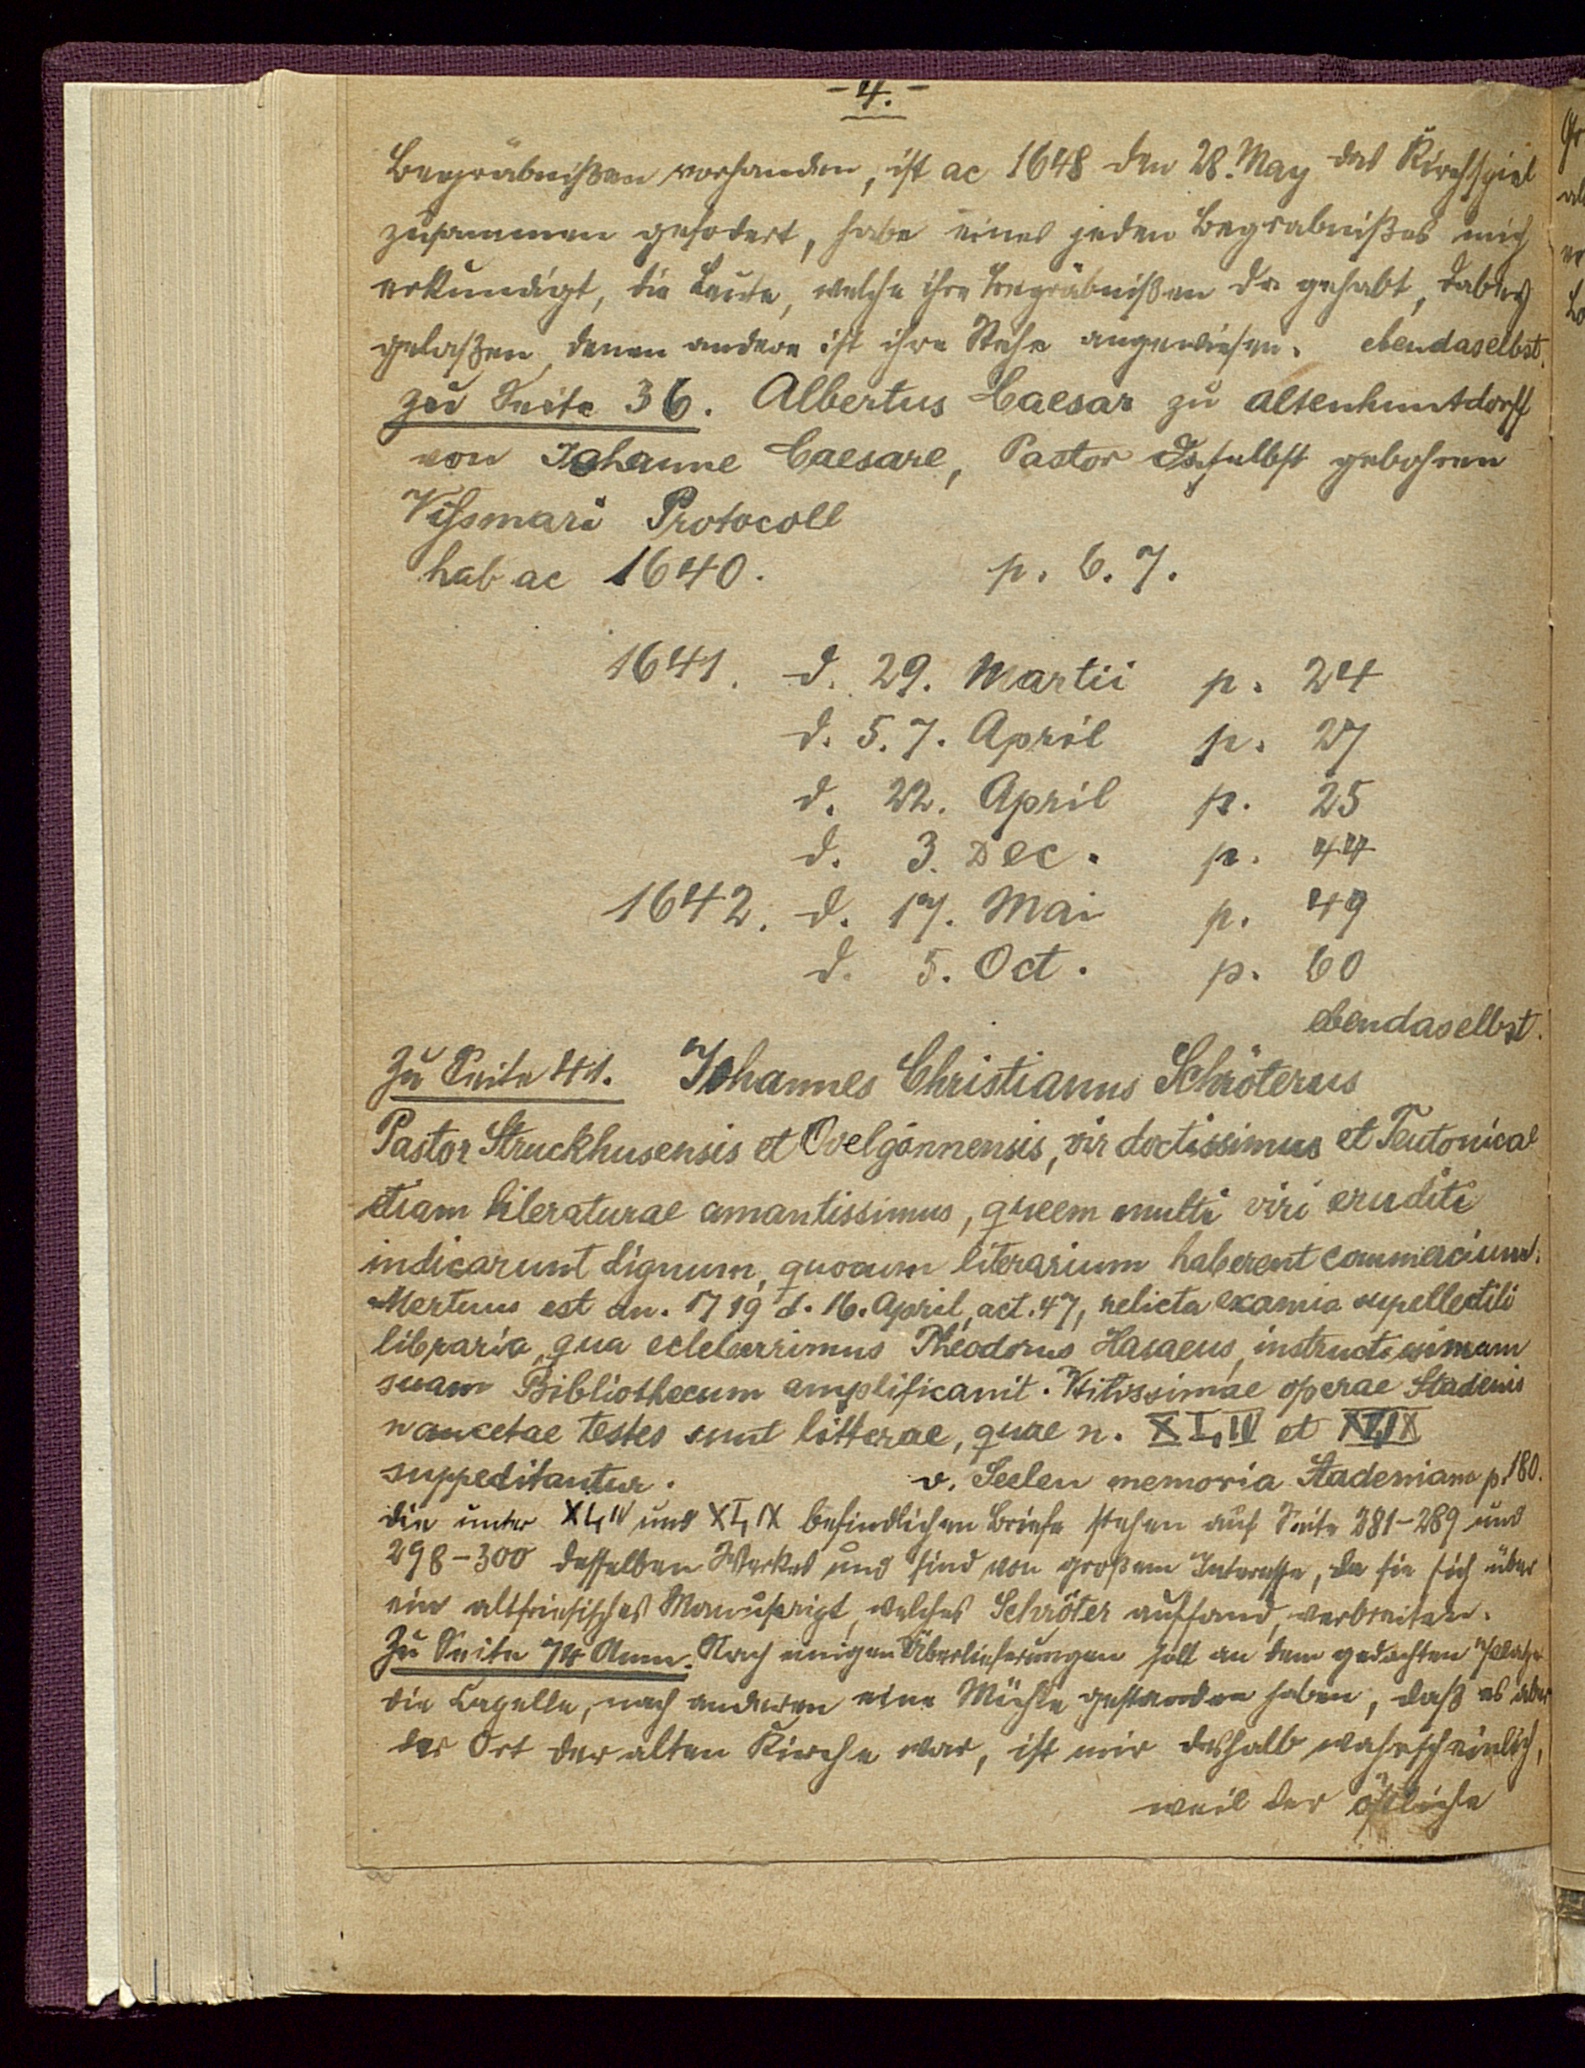 - 4. -
Begräbnißen vorhanden, ist ac 1648 den 28. May das Kirchspiel
zusammen gefodert, habe eines jeden Begräbnißes mich
erkundigt, die Leute, welche ihre Begräbnißen da gehabt, dabey
gelaßen, denen andere ist ihre Stehe angewiesen. ebendaselbst.
zu Seite 36. Albertus Caesar zu Altenhuntdorff
von Iohanne Caesare, Pastor daselbst gebohren
Vissmari Protocoll
hab ac 1640. p. 6. 7.
1641. d. 29. Martii p. 24
d. 5. 7. April p. 27
d. 22. April p. 25
d. 3. Dec. p. 44
1642. d. 17. Mai p. 49
d. 5. Oct. p. 60
ebendaselbst.
Zu Seite 41. Iohannes Christianus Schröterus
Pastor Struckhusensis et Ovelgönnensis, vir doctissimus et Teutonicae
etiam literaturae amantissimus, queem multi viri eruditi
indicarunt dignum, quocum literarium haberent commercium.
Mertuus est an. 1719 d. 16. April, aet. 47, relicta examia supellectili
libraria, qua celeberrimus Theodorus Hasaeus, instructissimam
suam Bibliothecum amplificavit. operae Stadenis
testes sunt litterae, quae n. XI, IV et XI, IX
suppeditantur. v. Seelen memoria Stadeniana p. 180.
die unter XI, IV und XI, IX befindlichen Briefe stehen auf Seite 281-289 und
298-300 desselben Werkes und sind von großem Interesse, da sie sich über
ein altfriesisches Manuscript, welches Schröter auffand, verbreiten.
Zu Seite 74 Anm. Nach einigen Überlieferungen soll an dem gedachten Platze
die Capelle, nach anderen eine Mühle gestanden haben, daß es aber
der Ort der alten Kirche war, ist mir deshalb wahrscheinlich,
weil der östliche